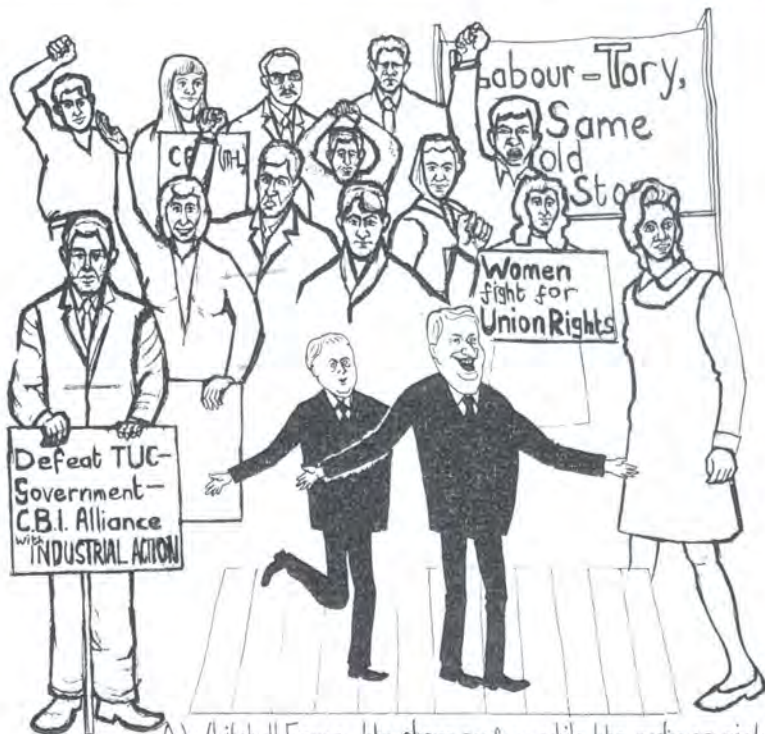 Labour-Tory,
Same
old
Sto
CB
(M-L)
Women
fight for
Union Rights
Defeat TUC-
Government-
C.B.I. Alliance
with INDUSTRIAL ACTION